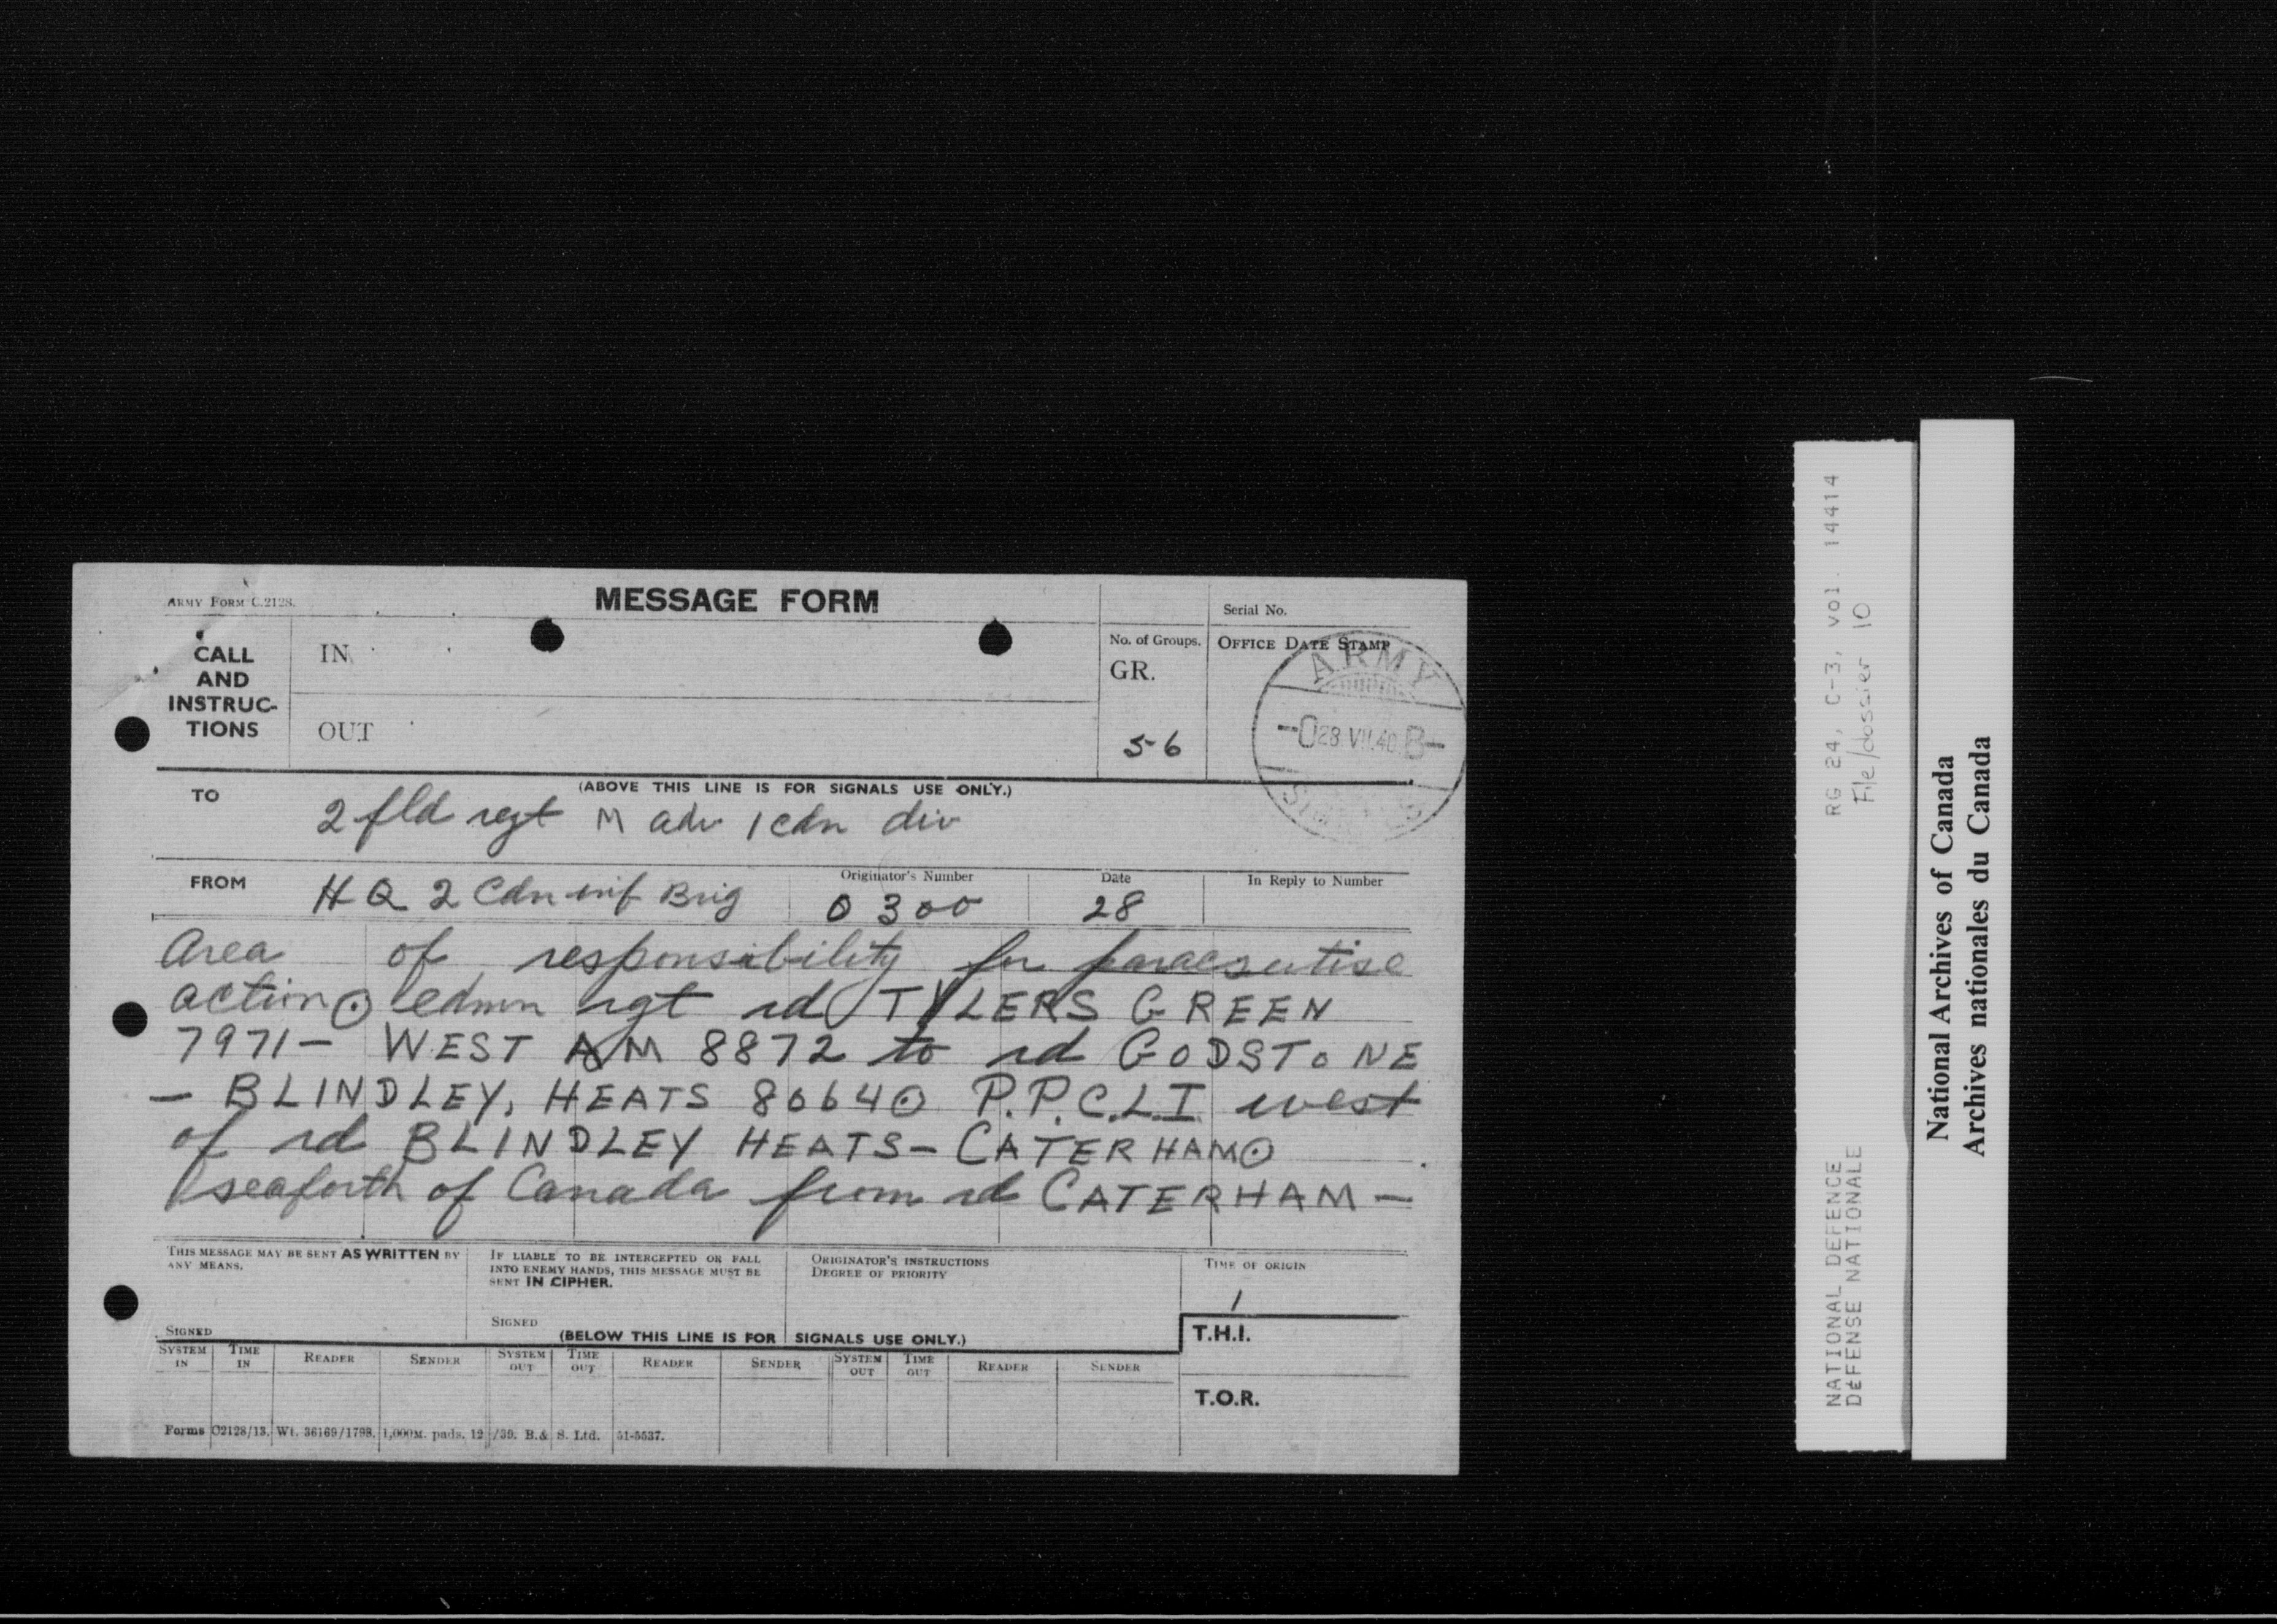 ARMY FORM C.2128.
MESSAGE FORM
Serial No.
CALL
AND
INSTRUC-
TIONS
IN
OUT
No. of Groups.
GR.
56
OFFICE DATE STAMP
ARMY
28 VII.40
SIGNALS
(ABOVE THIS LINE IS FOR SIGNALS USE ONLY.)
TO
2 fld regt M adv 1 cdn div
FROM
HQ 2 Cdn inf Brig
Originator's Number
O 300
Date
28
In Reply to Number
Area of responsibility for
action ⊙ edmn rgt rd TYLERS GREEN
7971 - WEST 8872 to rd GODSTONE
- BLINDLEY, HEATS 8064 ⊙ P.P.C.L.I west
of rd BLINDLEY HEATS - CATERHAM ⊙
seaforth of Canada from rd CATERHAM -
THIS MESSAGE MAY BE SENT AS WRITTEN BY
ANY MEANS.
SIGNED
IF LIABLE TO BE INTERCEPTED OR FALL
INTO ENEMY HANDS, THIS MESSAGE MUST BE
SENT IN CIPHER.
SIGNED
ORIGINATOR'S INSTRUCTIONS
DEGREE OF PRIORITY
TIME OF ORIGIN
(BELOW THIS LINE IS FOR SIGNALS USE ONLY.)
T.H.I.
SYSTEM IN TIME IN READER SENDER SYSTEM OUT TIME OUT READER SENDER SYSTEM OUT TIME OUT READER SENDER
T.O.R.
Forms C2128/13. Wt. 36169/1798. 1,000M. pads. 12/39. B.& S. Ltd. 51-5537.
RG 24, C-3, vol. 14414
File/dossier 10
NATIONAL DEFENCE
DÉFENSE NATIONALE
National Archives of Canada
Archives nationales du Canada